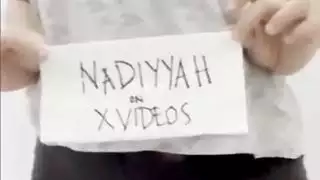 NADIYYAH
ON
XVIDEOS